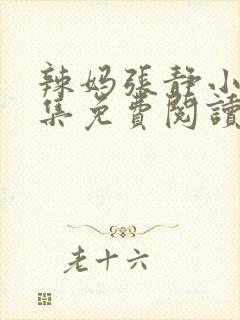 辣妈張静小
集免費閱讀
老十六